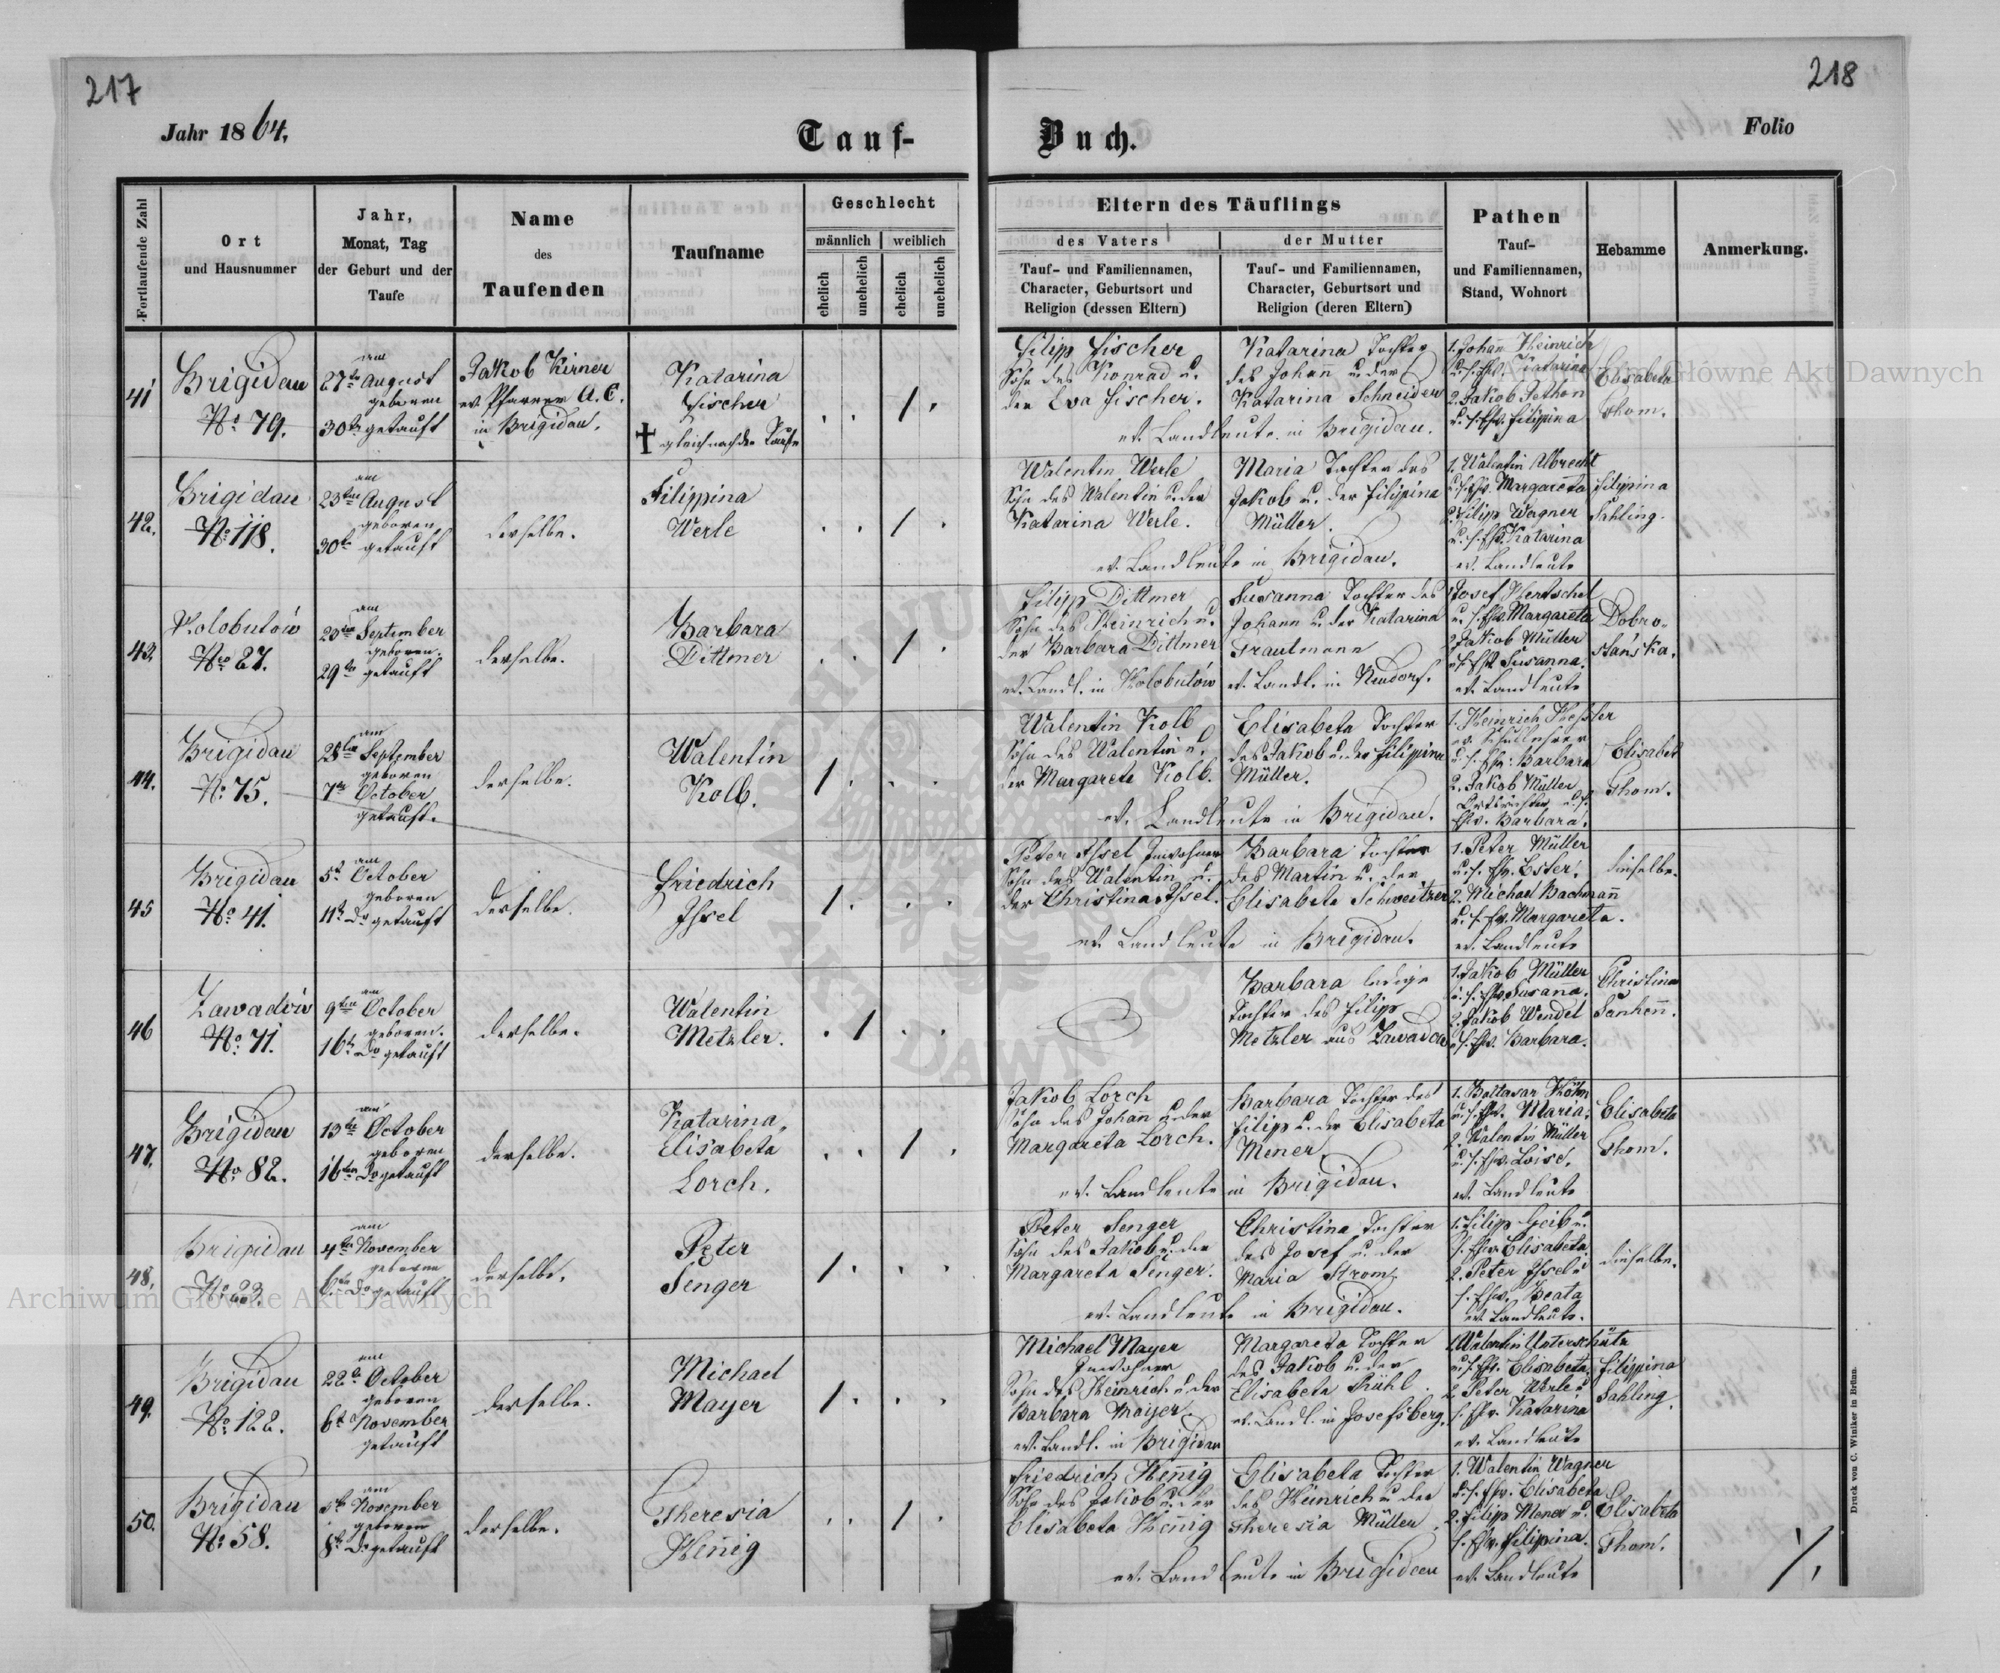 217
218
Jahr 1864.
Tauf-
Buch.
Folio
Fortlaufende Zahl
Ort
und Hausnummer
Jahr,
Monat, Tag
der Geburt und der
Taufe
Name
des
Taufenden
Taufname
Geschlecht
männlich
weiblich
ehelich
unehelich
ehelich
unehelich
Eltern des Täuflings
des Vaters
der Mutter
Tauf- und Familiennamen,
Character, Geburtsort und
Religion (dessen Eltern)
Tauf- und Familiennamen,
Character, Geburtsort und
Religion (deren Eltern)
Pathen
Tauf-
und Familiennamen,
Stand, Wohnort
Hebamme
Anmerkung.
41
Brigidau
No. 79.
am
27te August
geboren
30te getauft
Jakob Kirner
ev. Pfarrer A. C.
in Brigidau.
Katarina
Fischer
† gleich nach der Taufe
Filip Fischer
Sohn des Konrad u.
der Eva Fischer.
Katarina Tochter
des Johan u. der
Katarina Schneider
ev. Landleute in Brigidau.
1. Johañ Heinrich
u. s. Ehw. Katarina
2. Jakob Pethon
u. s. Ehw. Filippina
Elisabeta
Thom.
42.
Brigidau
No. 118.
am
23ten August
geboren
30te getauft
derselbe.
Filippina
Werle
Walentin Werle
Sohn des Walentin u. der
Katarina Werle.
Maria Tochter des
Jakob u. der Filippina
Müller.
ev. Landleute in Brigidau.
1. Walentin Albrecht
u. s. Ehw. Margareta
2. Filip Wagner
u. s. Ehw. Katarina
ev. Landleute
Filippina
Sahling.
43.
Holobutów
Nro 27.
am
23ten September
geboren.
29te getauft
derselbe.
Barbara
Dittmer
Filipp Dittmer
Sohn des Heinrich u.
der Barbara Dittmer
ev. Landl. in Holobutów
Susanna Tochter des
Johann u. der Katarina
Trautmann
ev. Landl. in Neudorf.
1. Josef Hertschel
u. s. Ehw. Margareta
2. Jakob Müller
u. s. Ehw. Susanna.
ev. Landleute
Dobro-
stańska.
44.
Brigidau
No. 75.
am
28ten September
geboren
7te October
getauft.
derselbe.
Walentin
Kolb.
Walentin Kolb
Sohn des Walentin u.
der Margareta Kolb.
Elisabeta Tochter
des Jakob u. der Filippina
Müller.
ev. Landleute in Brigidau.
1. Heinrich Heßler
ev. Schullehrer
u. s. Ehw. Barbara
2. Jakob Müller
Ortsrichter u. s.
Ehw. Barbara.
Elisabet
Thom.
45
Brigidau
No. 41.
am
5te October
geboren
11te Do getauft
derselbe.
Friedrich
Ißel
Peter Ißel Inwohner
Sohn des Walentin u.
der Christina Ißel.
Barbara Tochter
des Martin u. der
Elisabeta Schweitzer
ev. Landleute in Brigidau.
1. Peter Müller
u. s. Ehw. Ester.
2. Michael Bachmañ
u. s. Ehw. Margareta.
ev. Landleute
dieselbe.
46
Zawadów
No. 71.
am
9ten October
geboren.
16te Do getauft
derselbe.
Walentin
Metzler.
Barbara ledige
Tochter des Filipp
Metzler aus Zawadów
1. Jakob Müller
u. s. Ehw. Susaña.
2. Jakob Wendel
u. s. Ehw. Barbara.
Christina
47.
Brigidau
No. 82.
am
13te October
geboren
16ten Do getauft
derselbe.
Katarina,
Elisabeta
Lorch.
Jakob Lorch
Sohn des Johañ u. der
Margareta Lorch.
Barbara Tochter des
Filipp u. der Elisabeta
Mener.
ev. Landleute in Brigidau.
1. Baltasar Köhn
u. s. Ehw. Maria.
2. Walentin Müller
u. s. Ehw. Loise.
ev. Landleute
Elisabeta
Thom.
48.
Brigidau
No. 23.
am
4ten November
geboren
6te Do getauft
derselbe.
Peter
Senger
Peter Senger
Sohn des Jakob u. der
Margareta Senger.
Christina Tochter
des Josef u. der
Maria Strom.
ev. Landleute in Brigidau.
1. Filip Geib u.
s. Ehw. Elisabeta.
2. Peter Ißel u.
s. Ehw. Beata
ev. Landleute.
dieselbe.
49.
Brigidau
No. 122.
am
22te October
geboren
6te November
getauft
derselbe.
Michael
Mayer
Michael Mayer
Inwohner
Sohn des Heinrich u. der
Barbara Mayer
ev. Landl. in Brigidau
Margareta Tochter
des Jakob u. der
Elisabeta Rühl.
ev. Landl. in Josefsberg.
1. Walentin Unterschütz
u. s. Ehw. Elisabeta.
2. Peter Werle u.
s. Ehw. Katarina
ev. Landleute
Filippina
Sahling.
50.
Brigidau
No. 58.
am
5te November
geboren
8te Do getauft
derselbe.
Theresia
Heñig
Friedrich Heñig
Sohn des Jakob u. der
Elisabeta Heñig
Elisabeta Tochter
des Heinrich u. der
Theresia Müller.
ev. Landleute in Brigidau
1. Walentin Wagner
u. s. Ehw. Elisabeta
2. Filipp Mener u.
s. Ehw. Filippina.
ev. Landleute
Elisabeta
Thom.
Druck von C. Winiker in Brünn.
Archiwum Główne Akt Dawnych
Archiwum Główne Akt Dawnych
ARCHIWUM GŁÓWNE AKT DAWNYCH